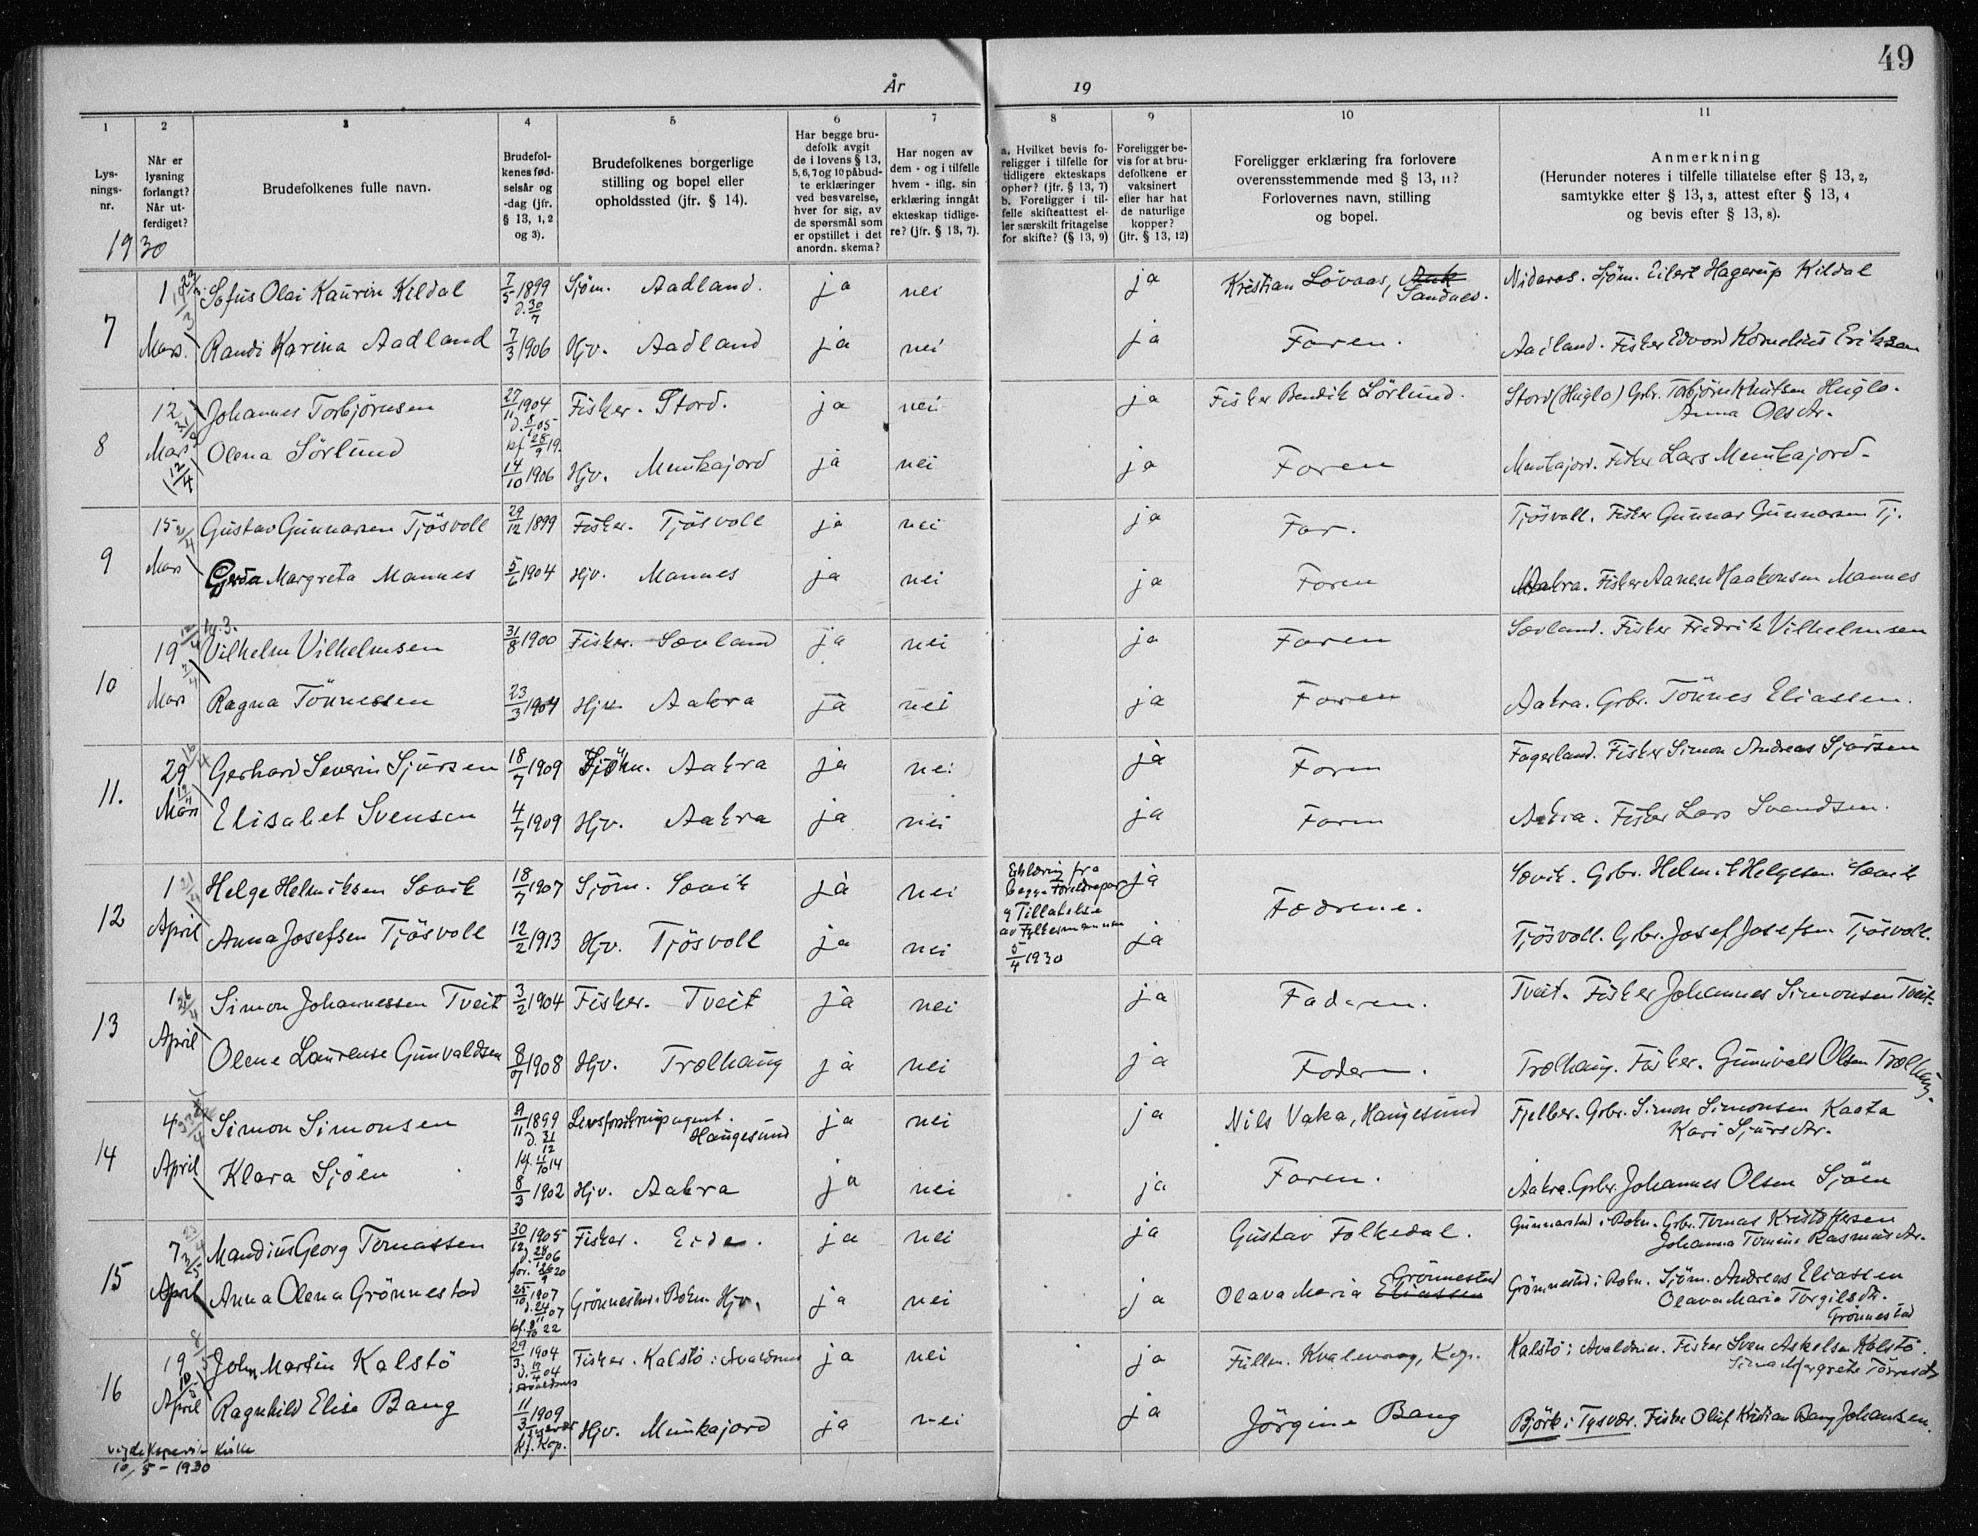 49
År 19
1 2 3 4 5 6 7 8 9 10 11
Lys-
nings-
nr.
Når er
lysning
forlangt?
Når ut-
ferdiget?
Brudefolkenes fulle navn.
Brudefol-
kenes fød-
selsår og
-dag (jfr.
§ 13, 1, 2
og 3).
Brudefolkenes borgerlige
stilling og bopel eller
opholdssted (jfr. § 14).
Har begge bru-
defolk avgit
de i lovens § 13,
5, 6, 7 og 10 påbud-
te erklæringer
ved besvarelse,
hver for sig, av
de spørsmål som
er opstillet i det
anordn. skema?
Har nogen av
dem - og i tilfelle
hvem - iflg. sin
erklæring inngått
ekteskap tidlige-
re? (jfr. § 13, 7).
a. Hvilket bevis fo-
religger i tilfelle for
tidligere ekteskaps
ophør? (jfr. § 13, 7)
b. Foreligger i til-
felle skifteattest el-
ler særskilt fritagelse
for skifte? (§ 13, 9)
Foreligger be-
vis for at bru-
defolkene er
vaksinert
eller har hat
de naturlige
kopper?
(jfr. § 13, 12)
Foreligger erklæring fra forlovere
overensstemmende med § 13, 11?
Forlovernes navn, stilling
og bopel.
Anmerkning
(Herunder noteres i tilfelle tillatelse efter § 13, 2,
samtykke efter § 13, 3, attest efter § 13, 4
og bevis efter § 13, 8).
1930
7 1 Sofus Olai Kaurin Kildal 7/5 1899 d. 30/7 Sjøm. Aadland. ja nei ja Kristian Lövaas, Sandnes. Nidaros. Sjøm. Eilert Hagerup Kildal
Mars. Randi Karina Aadland 7/3 1906 Hjv. Aadland ja nei ja Faren. Aadland. Fisker Edvard Kornelius Eriksen
8 12 Johannes Torbjørnsen 27/11 1904 Fisker. Stord. ja nei ja Fisker Bendik Sörlund. Stord (Huglo) Grbr. Torbjørn Knutsen Huglo.
Anna Olsdtr.
Mars (12/4) Olena Sörlund 14/10 1906 Hjv. Munkajord ja nei ja Faren Munkajord. Fisker Lars Munkajord.
9 15 2/4 Gustav Gunnarsen Tjösvoll 29/12 1899 Fisker. Tjösvoll ja nei ja Far. Tjösvoll. Fisker Gunnar Gunnarsen Tj.
Mars Gerda Margreta Mannes 5/6 1904 Hjv. Mannes ja nei ja Faren Aakra. Fisker Aanen Haakonsen Mannes
10 19 Vilhelm Vilhelmsen 31/8 1900 Fisker. Sævland ja nei ja Faren Sævland. Fisker Fredrik Vilhelmsen
Mars Ragna Tönnessen 23/3 1904 Hjv. Aakra ja nei ja Faren Aakra. Grbr. Tönnes Eliassen.
11. 29 Gerhard Severin Sjursen 18/7 1909 Sjöm. Aakra ja nei ja Faren Fagerland. Fisker Simon Andreas Sjursen
Mars Elisabet Svensen 4/7 1909 Hjv. Aakra ja nei ja Faren Aakra. Fisker Lars Svendsen.
12 1 Helge Helmiksen Sævik 18/7 1907 Sjöm. Sævik ja nei Erklæring fra
begge Foreldrepar
og Tillatelse
av Fylkesmannen
5/4 1930 ja Fædrene. Sævik. Grbr. Helmik Helgesen Sævik
April Anna Josefsen Tjösvoll 12/2 1913 Hjv. Tjösvoll ja nei ja Tjösvoll. Grbr. Josef Josefsen Tjösvoll.
13 1 26/4 Simon Johannessen Tveit 3/2 1904 Fisker. Tveit ja nei ja Faderen. Tveit. Fisker Johannes Simonsen Tveit.
April Olene Laurense Gunvaldsen 8/7 1908 Hjv. Trælhaug ja nei ja Faderen. Trælhaug. Fisker. Gunnvald Olsen Trælhaug.
14 4 Simon Simonsen 9/11 1899 d. 31/12 Livsforsikringsagent.
Haugesund ja nei ja Nils Vaka, Haugesund Fjelber. Grbr. Simon Simonsen Kaata
Kari Sjursdtr.
April Klara Sjöen 8/3 1902 Hjv. Aakra ja nei ja Faren. Aakra. Grbr. Johannes Olsen Sjöen
15 7 Mandius Georg Tomassen 30/12 1905 Fisker. Eide. ja nei ja Gustav Folkedal. Gunnarstad i Bokn. Grbr. Tomas Kristoffersen
Johanna Tomine Rasmusdtr.
April Anna Olena Grönnestad 25/10 1907 Grönnestad. Bokn Hjv. ja nei ja Olava Maria Eliassen Grönnestad Grönnestad i Bokn. Sjöm. Andreas Eliassen
Olava Maria Torgilsdtr.
Grönnestad
16 19 John Martin Kalstö 29/3 1904 d. 17/4 04 i Avaldsnes Fisker. Kalstö i Avaldsnes ja nei ja Fullm. Kvalevaag, Kop. Kalstö i Avaldsnes. Fisker Sven Askelsen Kalstö.
April Ragnhild Elise Bang 11/3 1909 Tysvær kf. Kop. Hjv. Munkajord ja nei ja Jörgine Bang Björk i Tysvær. Fisker Oluf Kristian Bang Johansen.
vigde Kopervik kirke
10/5 - 1930